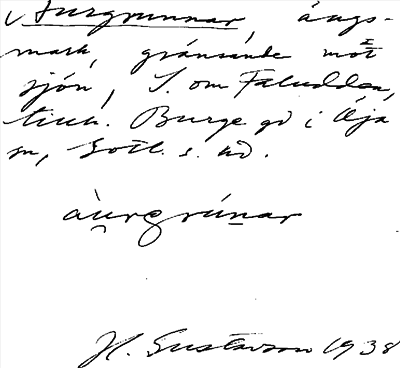 Aurgrunnar, ängs-
mark, gränsande mot
sjön, S. om Faludden,
tillh. Burge gd i Öja
sn, Gotl. s. ud.
àurgrúnar
H. Gustavson 1938